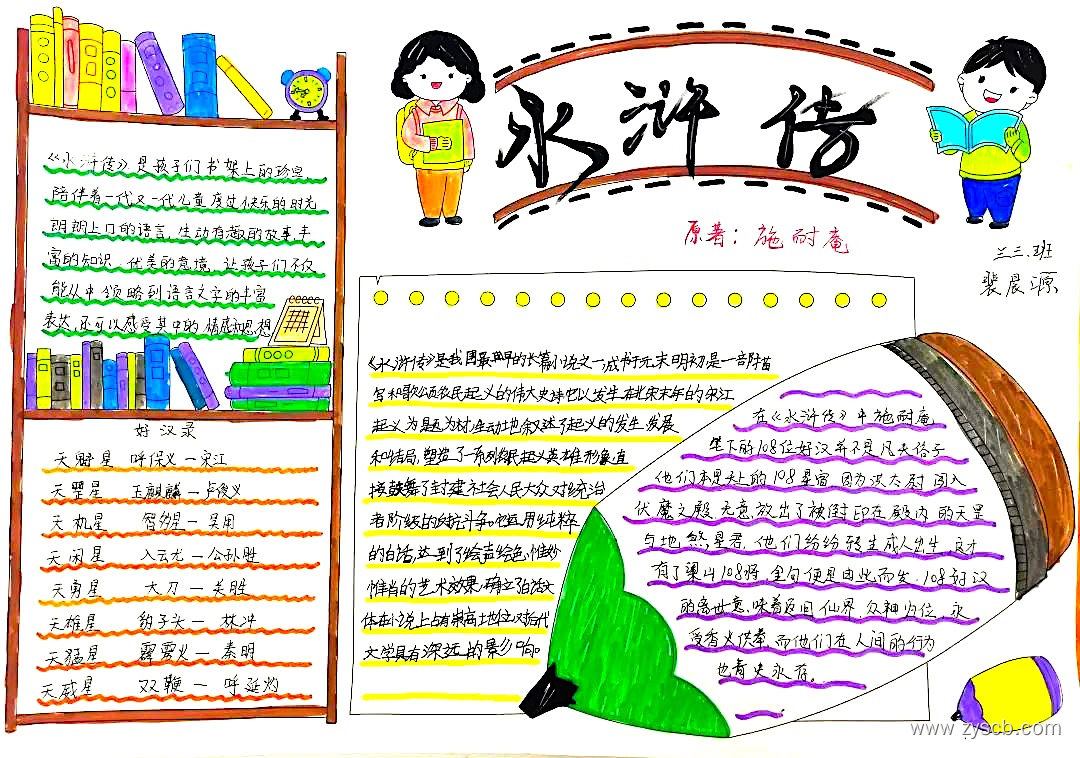 水浒传
原著：施耐庵
三三.班
裴晨源
《水浒传》是孩子们书架上的珍宝,
陪伴着一代又一代儿童度过快乐的时光
朗朗上口的语言,生动有趣的故事丰
富的知识、优美的意境,让孩子们不仅
能从中领略到语言文字的丰富
表达,还可以感受其中的情感和思想
好汉录
天魁星 呼保义—宋江
天罡星 玉麒麟—卢俊义
天机星 智多星—吴用
天闲星 入云龙—公孙胜
天勇星 大刀—关胜
天雄星 豹子头—林冲
天猛星 霹雳火—秦明
天威星 双鞭—呼延灼
《水浒传》是我国最早的长篇小说之一,成书于元末明初是一部描
写和歌颂农民起义的伟大史诗它以发生在北宋末年的宋江
起义为题材,生动地叙述了起义的发生发展
和结局,塑造了一系列农民起义英雄形象,直
接鼓舞了封建社会人民大众对统治
者阶级的反抗斗争.它运用纯粹
的白话,达到了绘声绘色,惟妙
惟肖的艺术效果.确立了白话文
体在小说上占有崇高地位,对后代
文学具有深远的影响。
在《水浒传》中施耐庵
笔下的108位好汉并不是凡夫俗子
他们本是天上的108星宿,因为洪太尉闯入
伏魔之殿,无意放出了被封印在殿内的天罡
与地煞星君,他们纷纷转生成人出生,这才
有了梁山108将,金句便是由此而发,108好汉
的离世意味着返回仙界,众神为位,永
受香火供奉,而他们在人间的行为
也青史永存。
www.zyscb.com